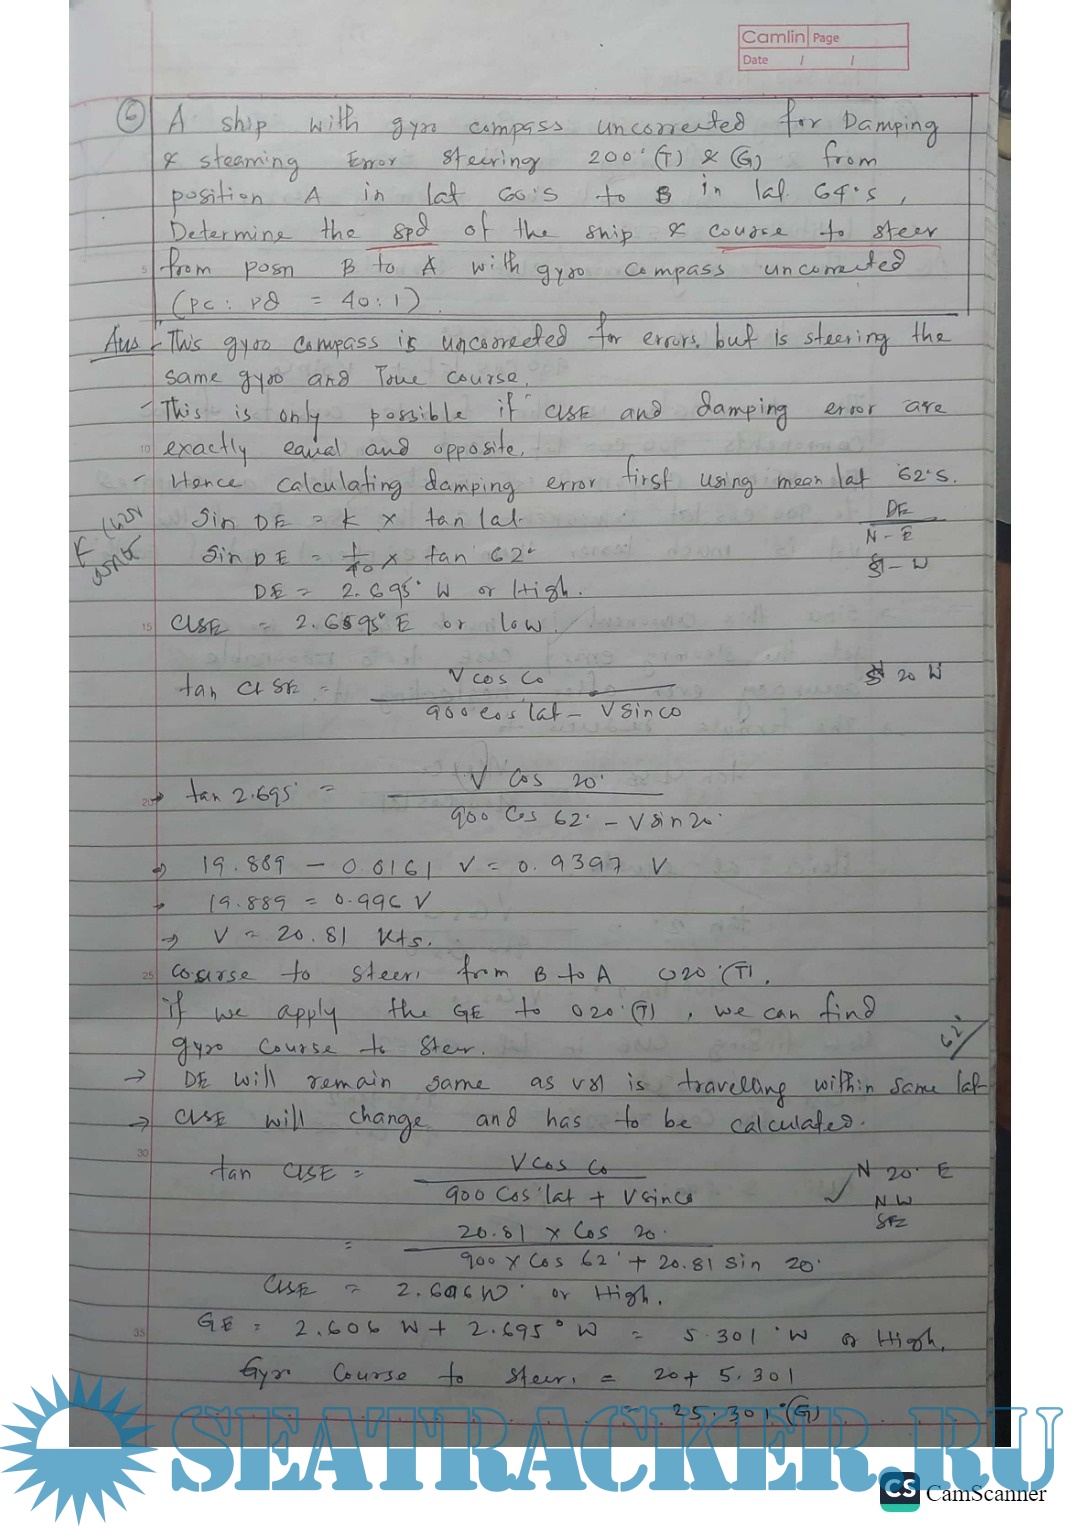 Camlin Page
Date / /
6 A ship with gyro compass uncorrected for Damping
& steaming Error steering 200°(T) & (G) from
position A in lat 60°S to B in lat. 64°S,
Determine the spd of the ship & course to steer
5 from posn B to A with gyro compass uncorrected
(PC : Pd = 40:1).
Ans - This gyro compass is uncorrected for errors, but is steering the
same gyro and True course.
- This is only possible if CLSE and damping error are
10 exactly equal and opposite.
- Hence calculating damping error first using mean lat 62°S.
Sin DE = K x tan lat.
DE
N - E
S - W
Sin DE = 1/40 x tan 62°
DE = 2.695° W or High.
15 CLSE = 2.695° E or low.
tan CLSE = V cos Co / 900 cos lat - V sin co
S 20 W
20 → tan 2.695° = V Cos 20° / 900 Cos 62° - V sin 20°
⇒ 19.889 - 0.0161 V = 0.9397 V
19.889 = 0.996 V
⇒ V = 20.81 Kts.
25 course to steer, from B to A 020°(T).
if we apply the GE to 020°(T), we can find
gyro course to steer.
62°
→ DE will remain same as vsl is travelling within same lat
→ CLSE will change and has to be calculated.
30
tan CLSE = V cos Co / 900 Cos lat + V sin co
N 20° E
N W
SE
= 20.81 x Cos 20° / 900 x Cos 62° + 20.81 sin 20°
CLSE = 2.606 W° or High.
35 GE = 2.606 W + 2.695° W = 5.301 °W or High.
Gyro Course to steer, = 20 + 5.301
= 25.301°(G)
SEATRACKER.RU
CS CamScanner